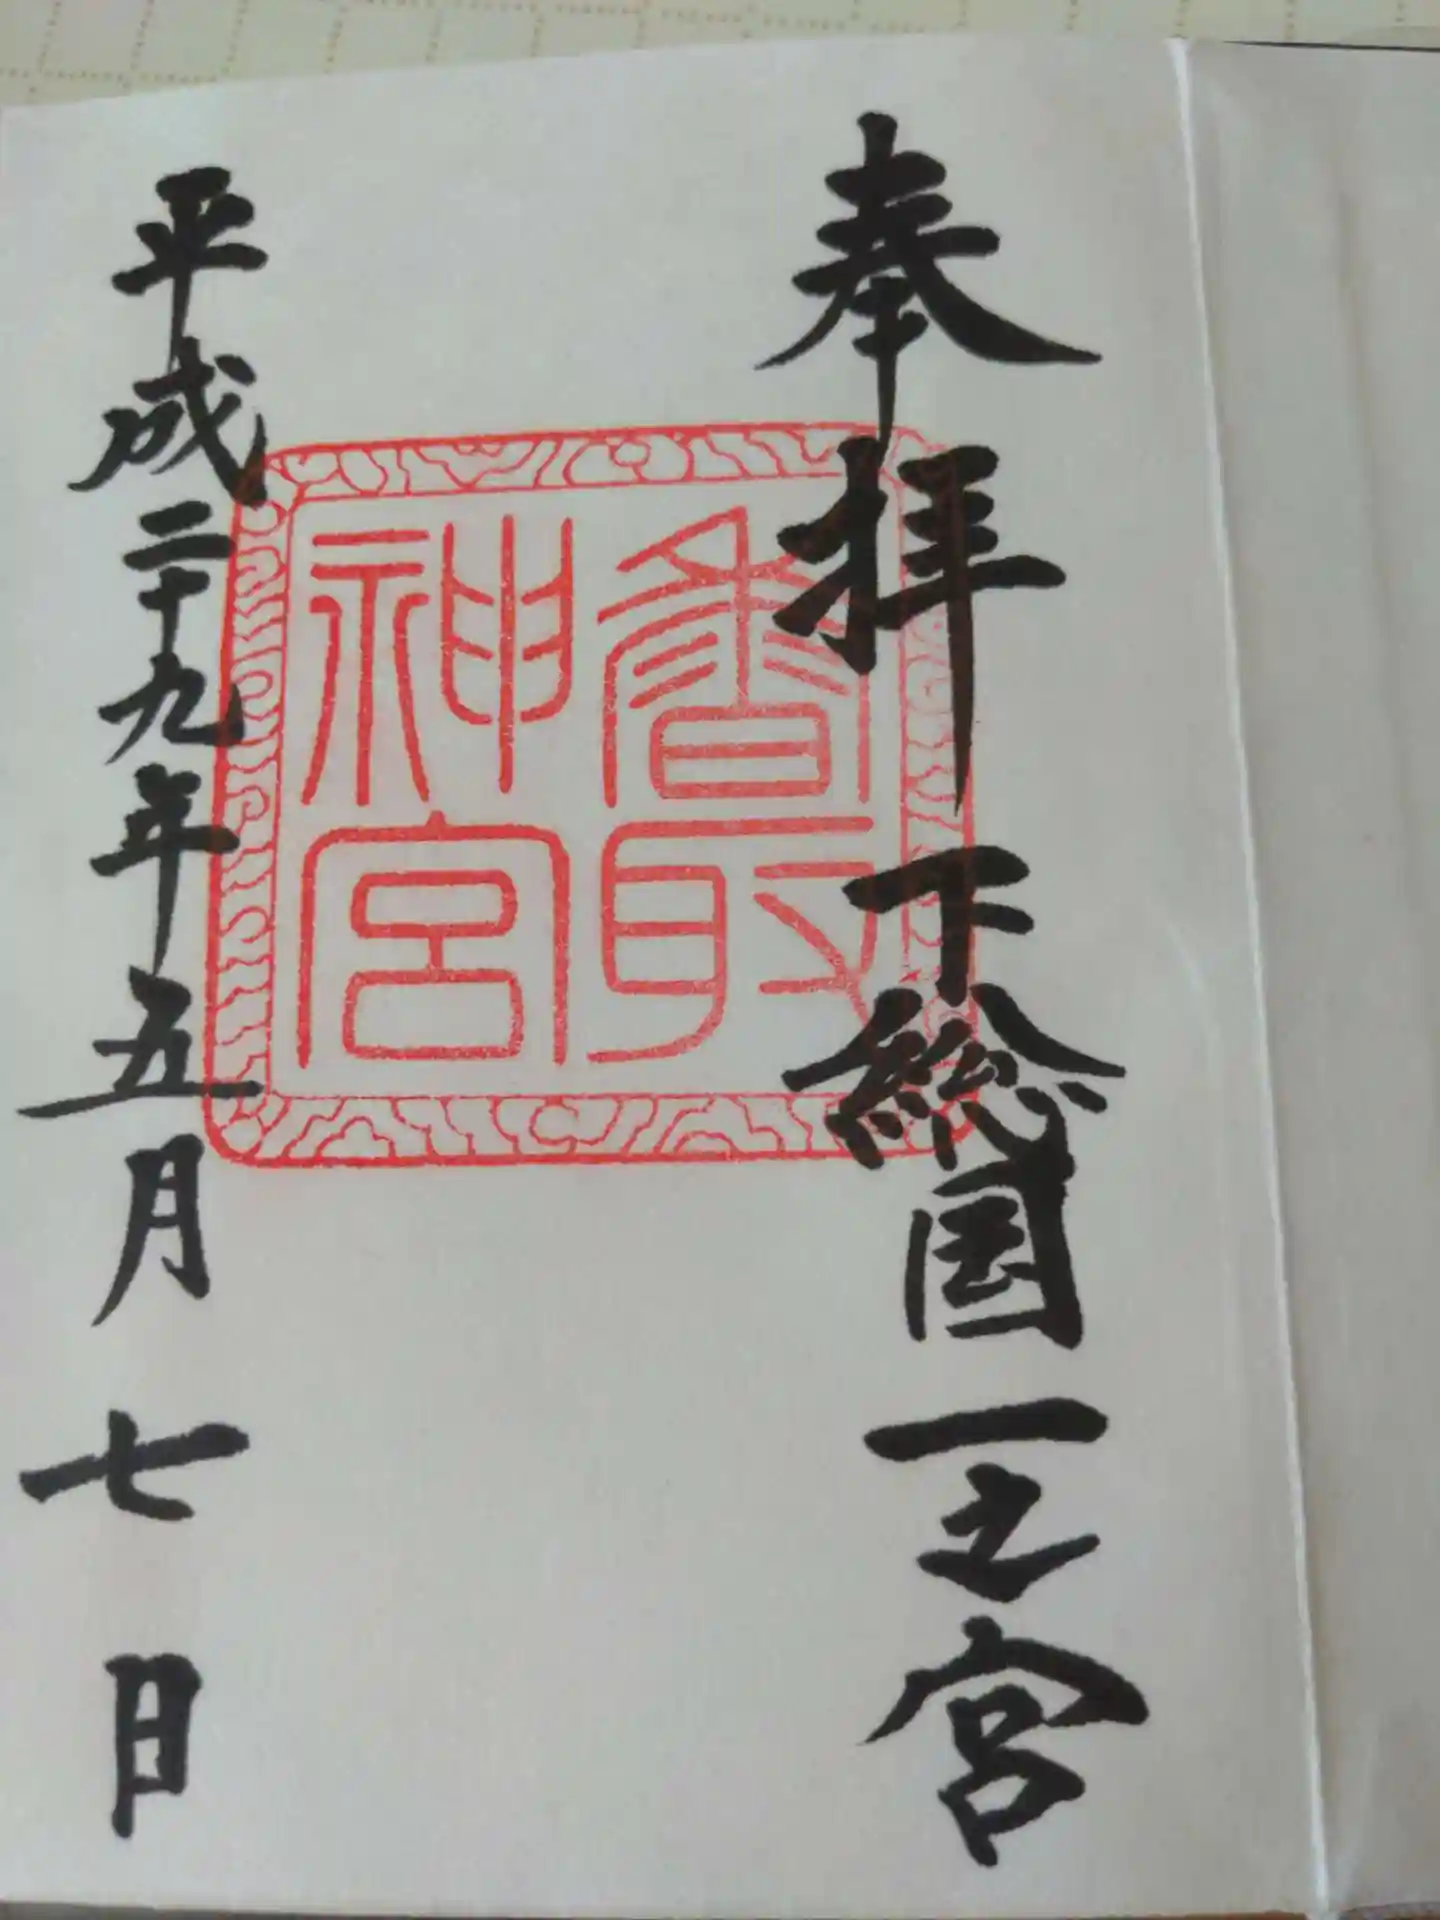 奉拝 下総国一之宮
香取
神宮
平成二十九年五月七日